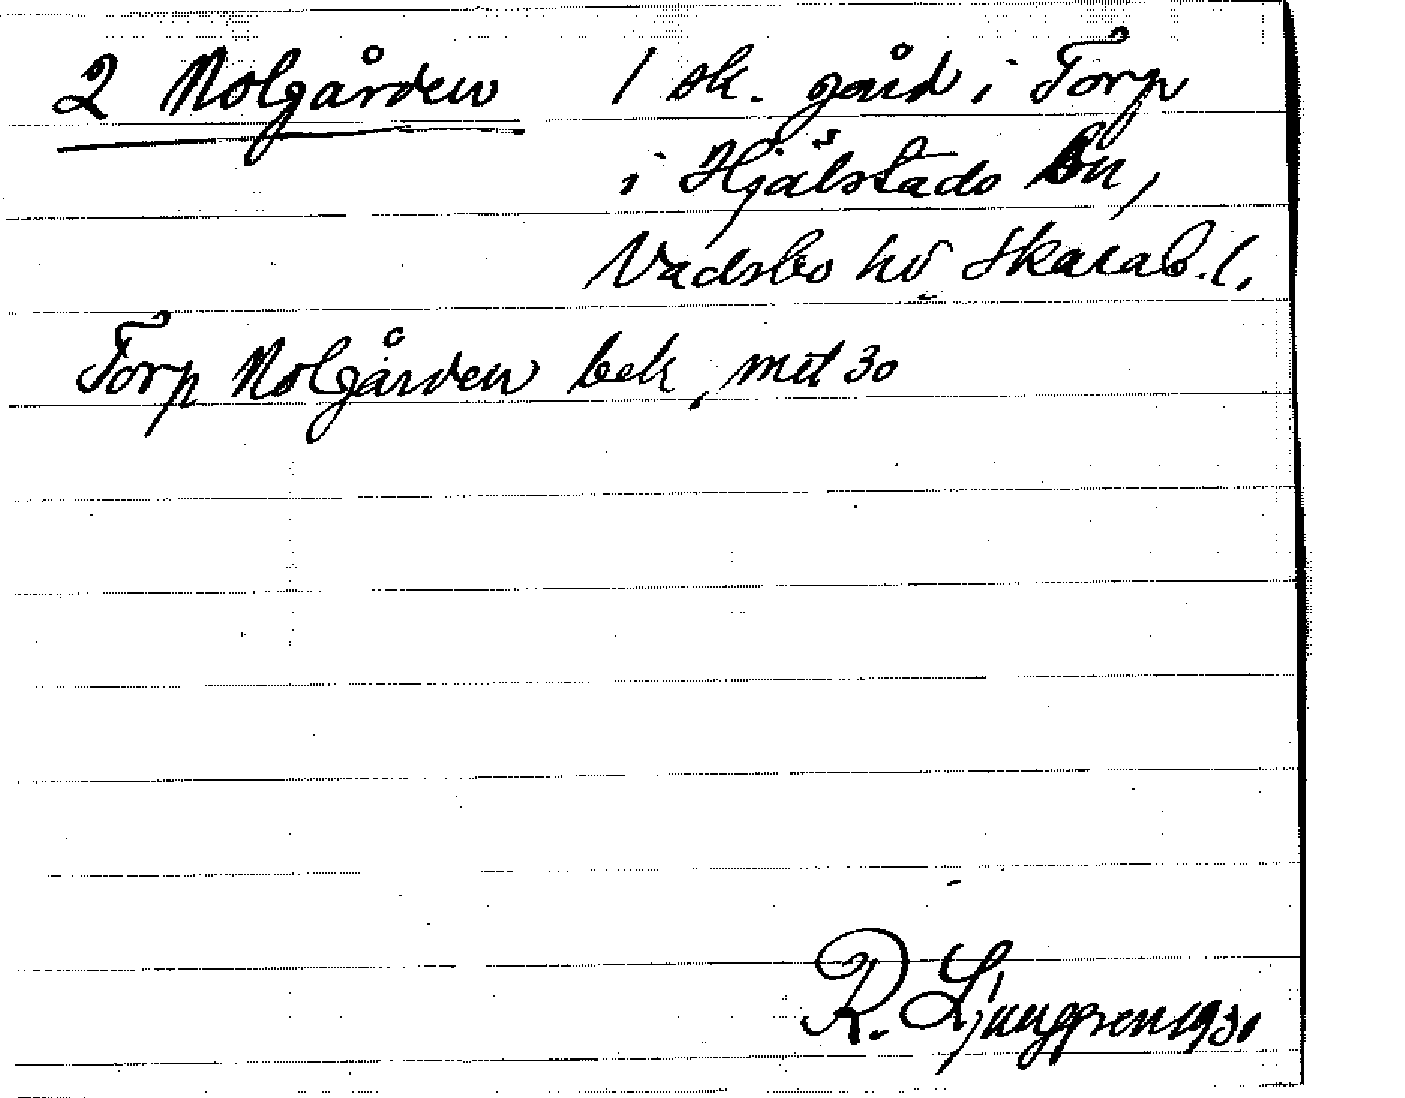 2 Nolgården 1 sk. gård i Torp
i Hjälstads sn,
Vadsbo hd Skarab. l.
Torp Nolgården bek, mtl 30
R. Ljunggren 1930